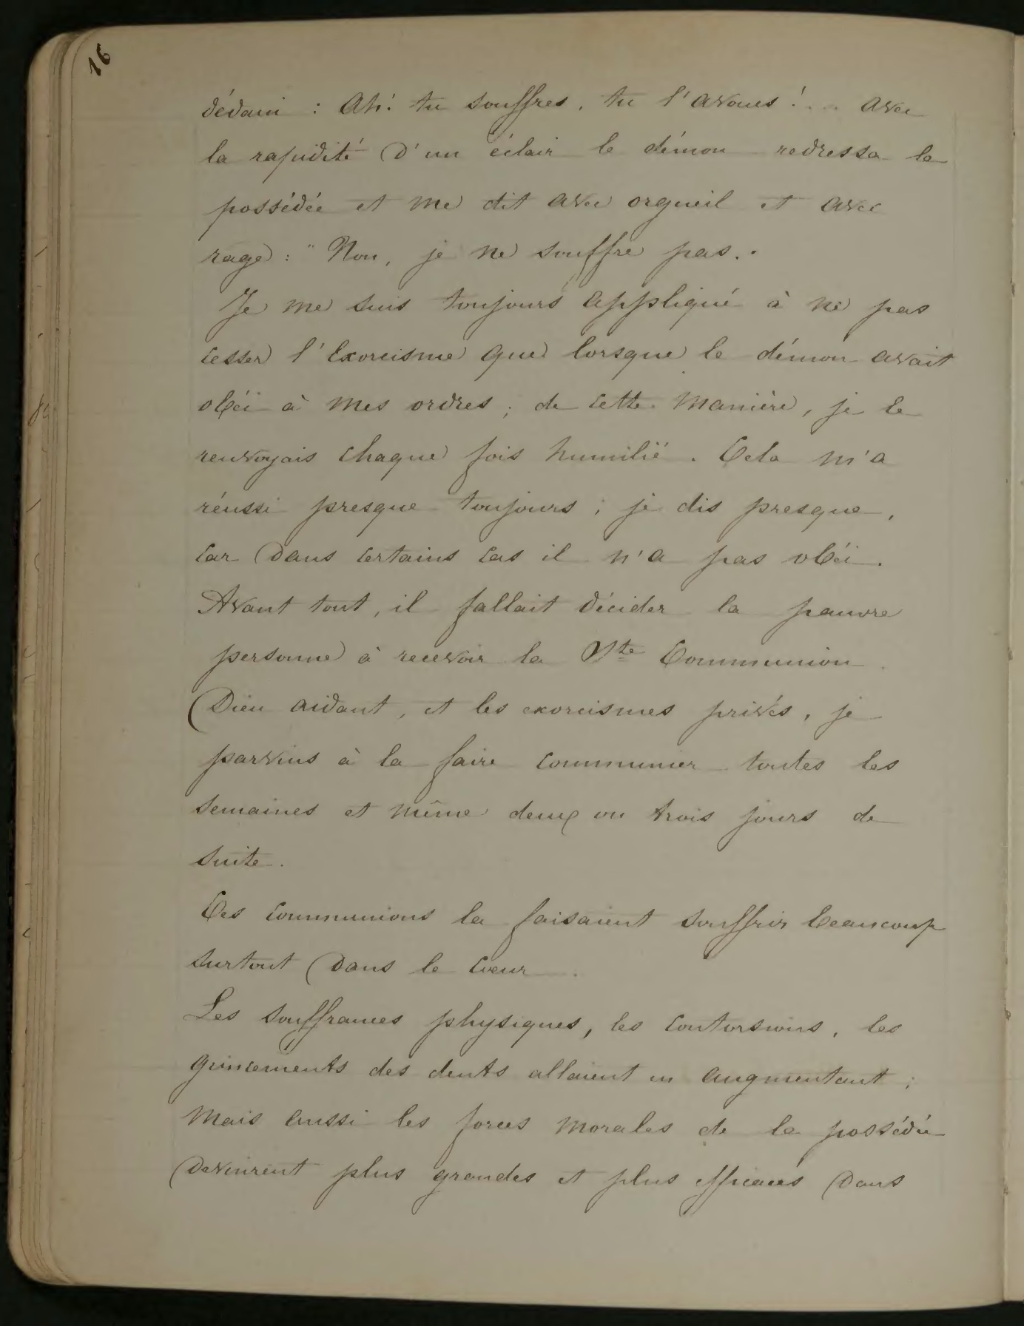 16
dédain : Ah! tu souffres, tu l'avoues!... avec
la rapidité d'un éclair le démon redressa la
possédée et me dit avec orgueil et avec
rage : " Non, je ne souffre pas. "
Je me suis toujours appliqué à ne pas
cesser l'Exorcisme que lorsque le démon avait
obéi à mes ordres ; de cette manière, je le
renvoyais chaque fois humilié. Cela m'a
réussi presque toujours ; je dis presque,
car dans certains cas il n'a pas obéi.
Avant tout, il fallait décider la pauvre
personne à recevoir la Ste Communion.
Dieu aidant, et les exorcismes privés, je
parvins à la faire communier toutes les
semaines et même deux ou trois jours de
suite.
Ces communions la faisaient souffrir beaucoup
surtout dans le cœur.
Les souffrances physiques, les contorsions, les
grincements des dents allaient en augmentant ;
mais aussi les forces morales de la possédée
devinrent plus grandes et plus efficaces dans